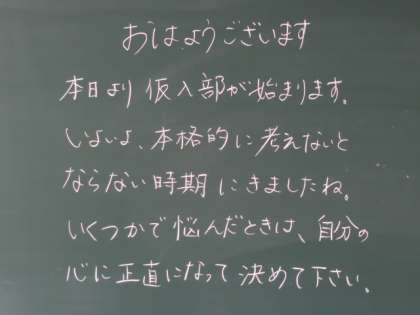 おはようございます
本日より仮入部が始まります。
いよいよ、本格的に考えないと
ならない時期にきましたね。
いくつかで悩んだときは、自分の
心に正直になって決めて下さい。